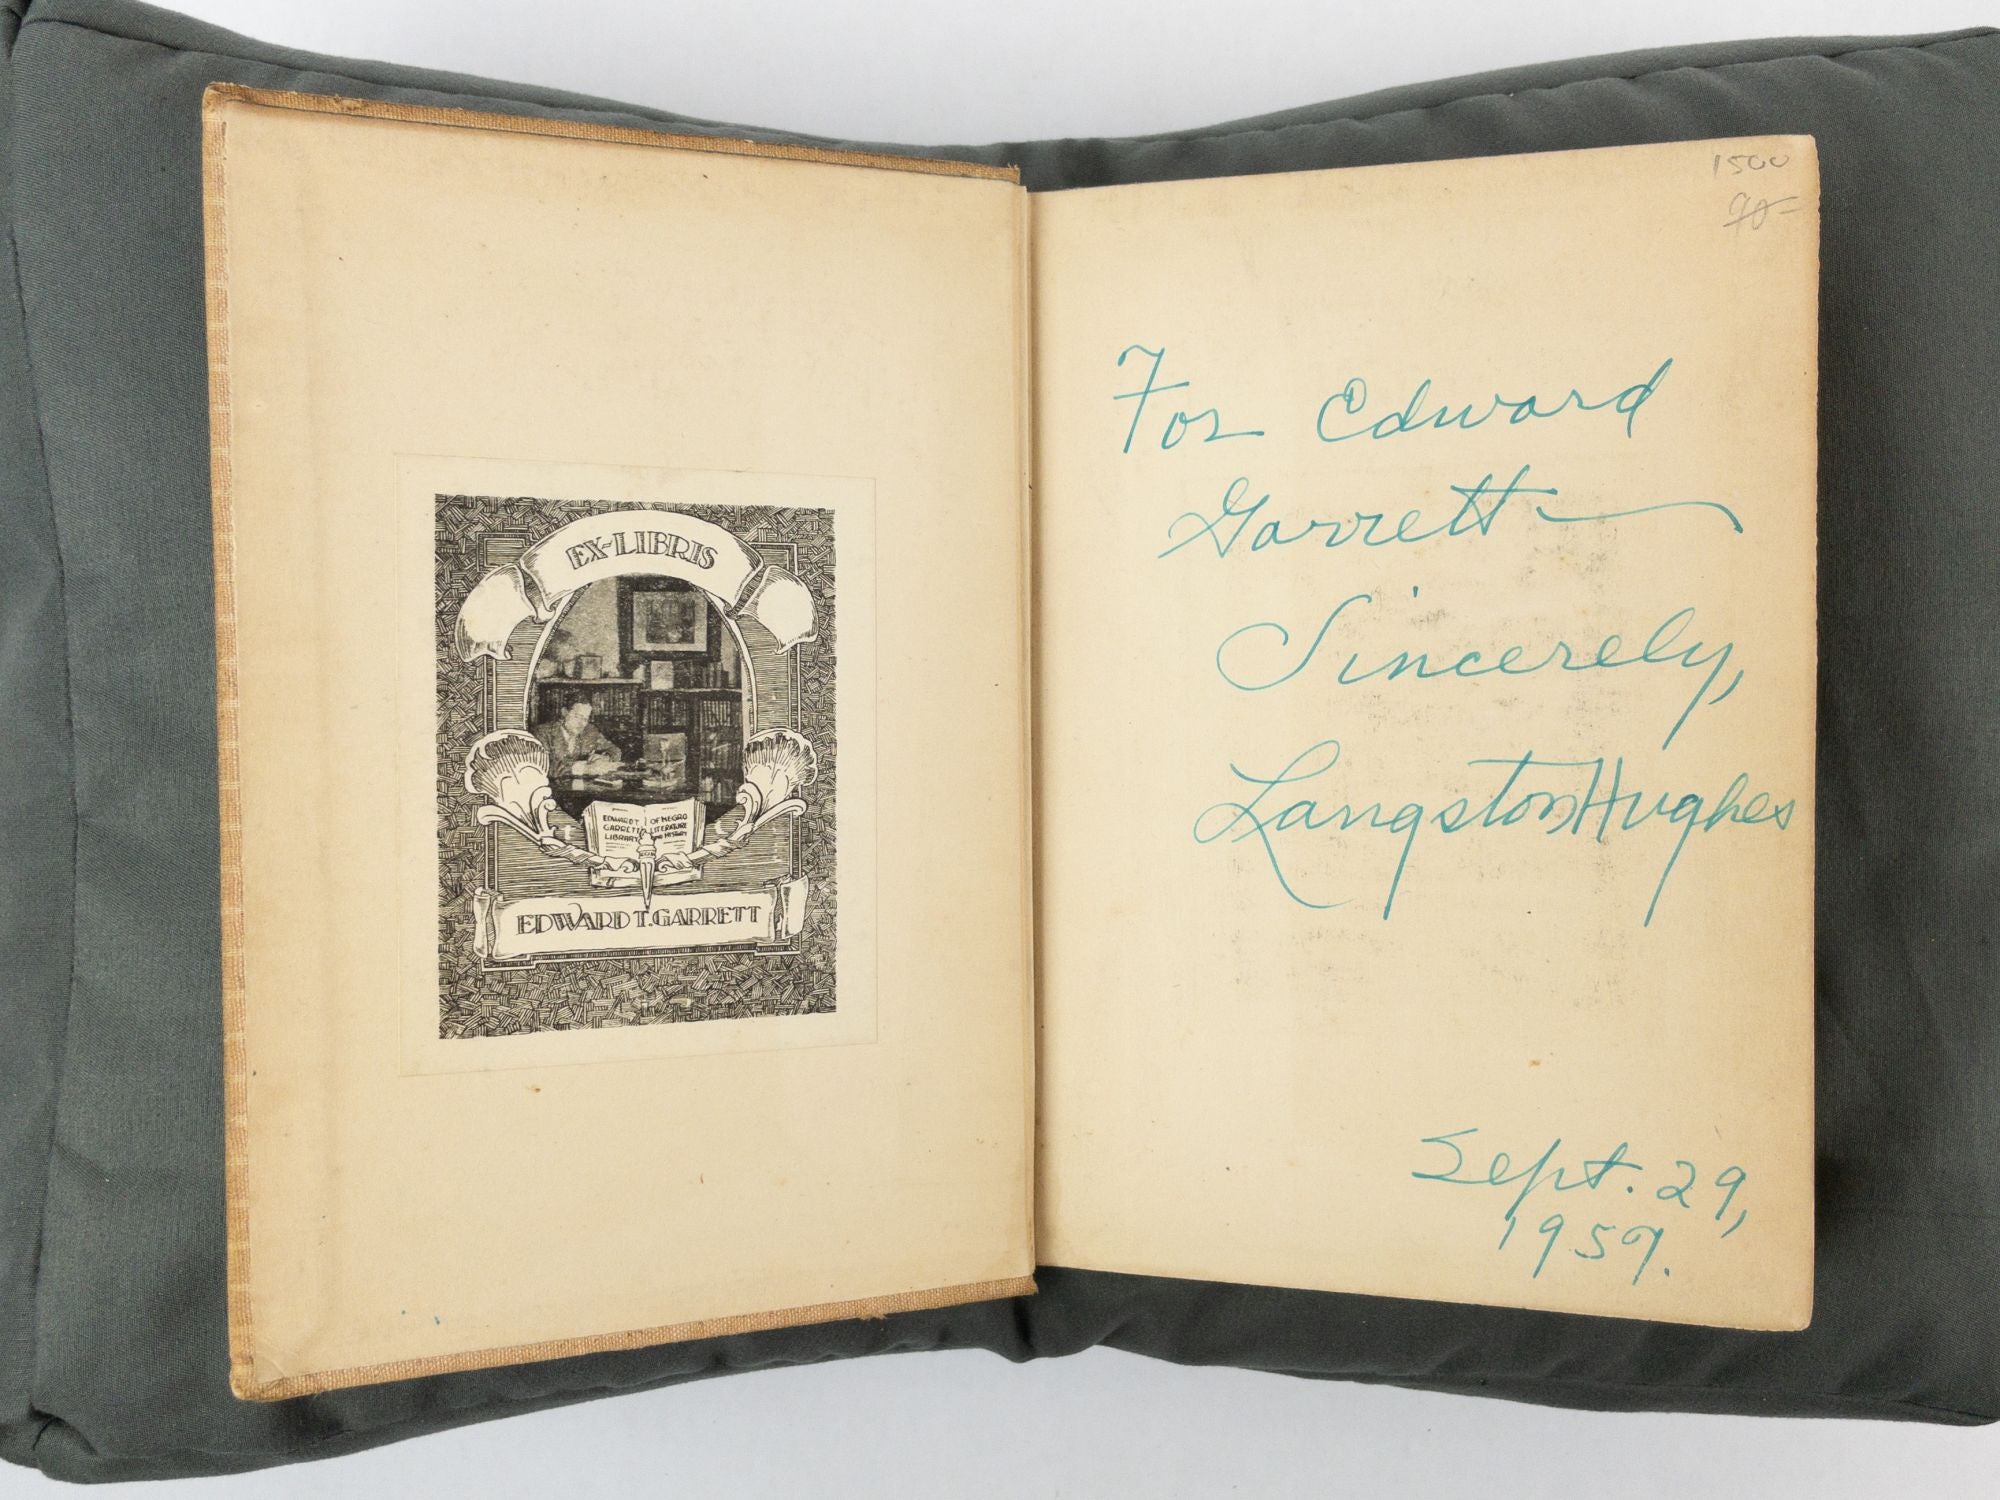 EX-LIBRIS
EDWARD T. OF NEGRO
GARRETT LITERATURE
LIBRARY AND HISTORY
EDWARD T. GARRETT
1500
90-
For Edward
Garrett —
Sincerely,
Langston Hughes
Sept. 29,
1959.